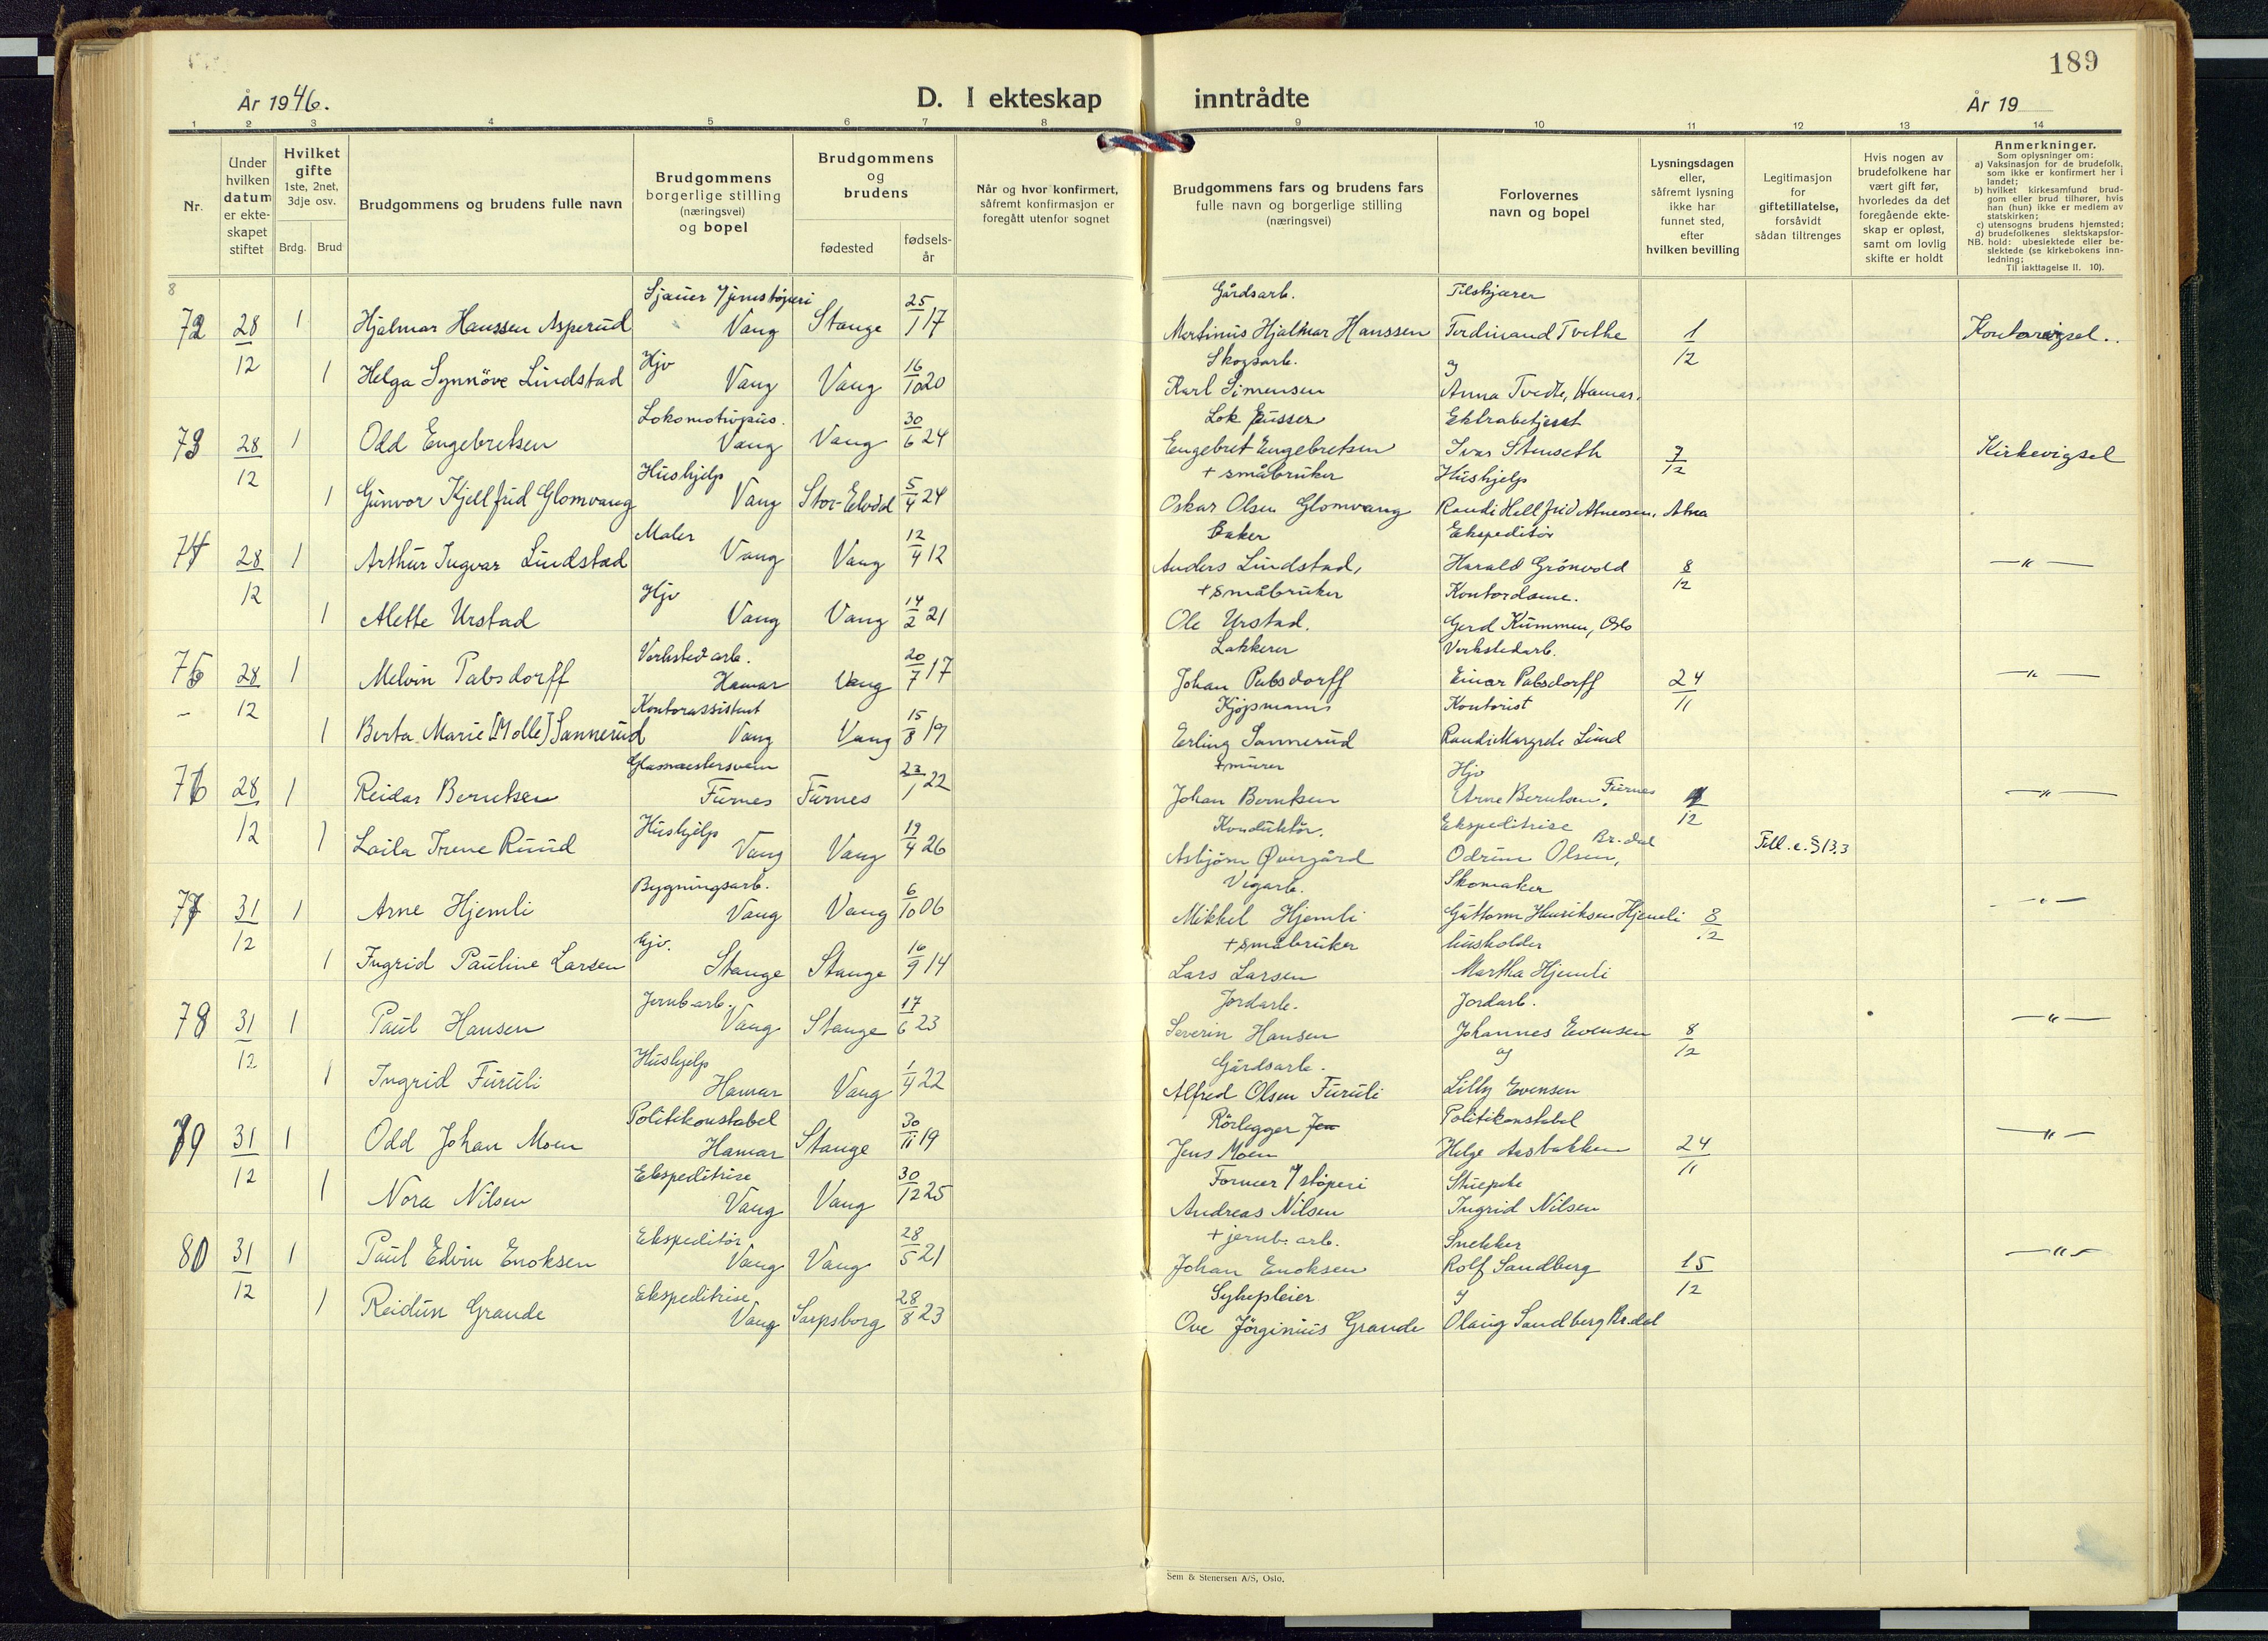 189
År 1946.
D. I ekteskap inntrådte
År 19
1 2 3 4 5 6 7 8 9 10 11 12 13 14
Nr.
Under hvilken datum er ekte-skapet stiftet
Hvilket gifte 1ste, 2net, 3dje osv.
Brdg. Brud
Brudgommens og brudens fulle navn
Brudgommens borgerlige stilling (næringsvei) og bopel
Brudgommens og brudens
fødested
fødsels-år
Når og hvor konfirmert, såfremt konfirmasjon er foregått utenfor sognet
Brudgommens fars og brudens fars fulle navn og borgerlige stilling (næringsvei)
Forlovernes navn og bopel
Lysningsdagen eller, såfremt lysning ikke har funnet sted, efter hvilken bevilling
Legitimasjon for giftetillatelse, forsåvidt sådan tiltrenges
Hvis nogen av brudefolkene har vært gift før, hvorledes da det foregående ekte-skap er opløst, samt om lovlig skifte er holdt
Anmerkninger.
Som oplysninger om:
a) Vaksinasjon for de brudefolk, som ikke er konfirmert her i landet;
b) hvilket kirkesamfund brud-gom eller brud tilhører, hvis han (hun) ikke er medlem av statskirken;
c) utensogns brudens hjemsted;
d) brudefolkenes slektskapsfor-hold: ubeslektede eller be-slektede (se kirkebokens inn-ledning;
NB.
Til iakttagelse II. 10).
8
Sjauer Gårdsarb.
72 28/12 1 Hjalmar Hanssen Asperud Vang Stange 25/1 17 Martinius Hjalmar Hanssen Ferdinand Tvethe 1/12 Kontorvigsel.
Hjv Skogsarb. og
1 Helga Synnöve Lindstad Vang Vang 16/10 20 Karl Simensen Anna Tvedte, Hamar.
Lokomotivpus. Lok pusser Ektrabetjent
73 28/12 1 Odd Engebretsen Vang Vang 30/6 24 Engebret Engebretsen Ivar Stenseth 7/12 Kirkevigsel
Hushjelp + småbruker Hushjelp
1 Gunvor Kjellfrid Glomvang Vang Stor-Elvdal 5/4 24 Oskar Olsen Glomvang Randi Hellfrid Atneosen, Atna
Maler Baker Ekspeditör
74 28/12 1 Arthur Ingvar Lindstad Vang Vang 12/4 12 Anders Lindstad, Harald Grönvold 8/12 — " —
Hjv + småbruker Kontordame.
1 Alette Urstad Vang Vang 14/2 21 Ole Urstad. Gerd Kummen, Oslo
Verksted arb. Lakkerer Verkstedarb.
75 28/12 1 Melvin Pabsdorff Hamar Vang 20/7 17 Johan Pabsdorff Einar Pabsdorff 24/11 — " —
Kontorassistent Kjøpmann Kontorist
1 Berta Marie [Molle] Sannerud Vang Vang 15/8 19 Erling Sannerud Randi Margrete Lund
Glassmestersvenn + murer Hjv
76 28/12 1 Reidar Berntsen Furnes Furnes 23/1 22 Johan Berntsen Arne Berntsen, Furnes /12 — " —
Hushjelp Konduktör. Ekspeditrise
1 Laila Irene Ruud Vang Vang 19/4 26 Asbjörn Øvergård Odrun Olsen, Br.dal Till. e. § 13,3
Bygningsarb. Vegarb. Skomaker
77 31/12 1 Arne Hjemli Vang Vang 6/10 06 Mikkel Hjemli Guttorm Henriksen Hjemli 8/12 — " —
Hjv. + småbruker husholder
1 Ingrid Pauline Larsen Stange Stange 16/9 14 Lars Larsen Martha Hjemli
Jernb. arb. Jordarb. Jordarb.
78 31/12 1 Paul Hansen Vang Stange 17/6 23 Severin Hansen Johannes Evensen 8/12 — " —
Hushjelp Gårdsarb. og
1 Ingrid Furuli Hamar Vang 1/4 22 Alfred Olsen Furuli Lilly Evensen
Politikonstabel Rörlegger Jen Politikonstabel
79 31/12 1 Odd Johan Moen Hamar Stange 30/11 19 Jens Moen Helge Aasbakken 24/11 — " —
Ekspeditrise Former støperi Stuepike
1 Nora Nilsen Vang Vang 30/12 25 Andreas Nilsen Ingrid Nilsen
Ekspeditör + jernb. arb. Snekker
80 31/12 1 Paul Edvin Enoksen Vang Vang 28/5 21 Johan Enoksen Rolf Sandberg 15/12 — " —
Ekspeditrise Sykepleier og
1 Reidun Grande Vang Sarpsborg 28/8 23 Ove Jörginius Grande Olaug Sandberg Br.dal
Sem & Stenersen A/S, Oslo.